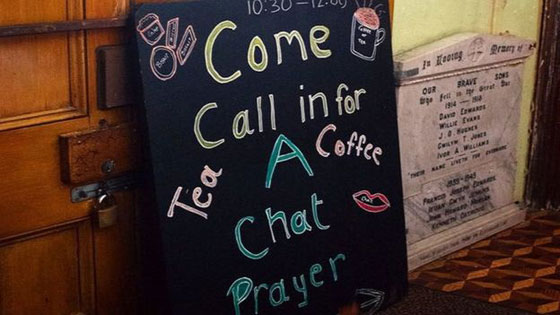 10:30 - 12:00
Come
Call in for
Tea A Coffee
Chat
Prayer
In Loving Memory of
OUR BRAVE SONS
Who fell in the Great War
1914 - 1918
DAVID EDWARDS
WILLIE EVANS
J. O. HUGHES
GWILYM T. JONES
IVOR A. WILLIAMS
"THEIR NAME LIVETH FOR EVERMORE"
1939 - 1945